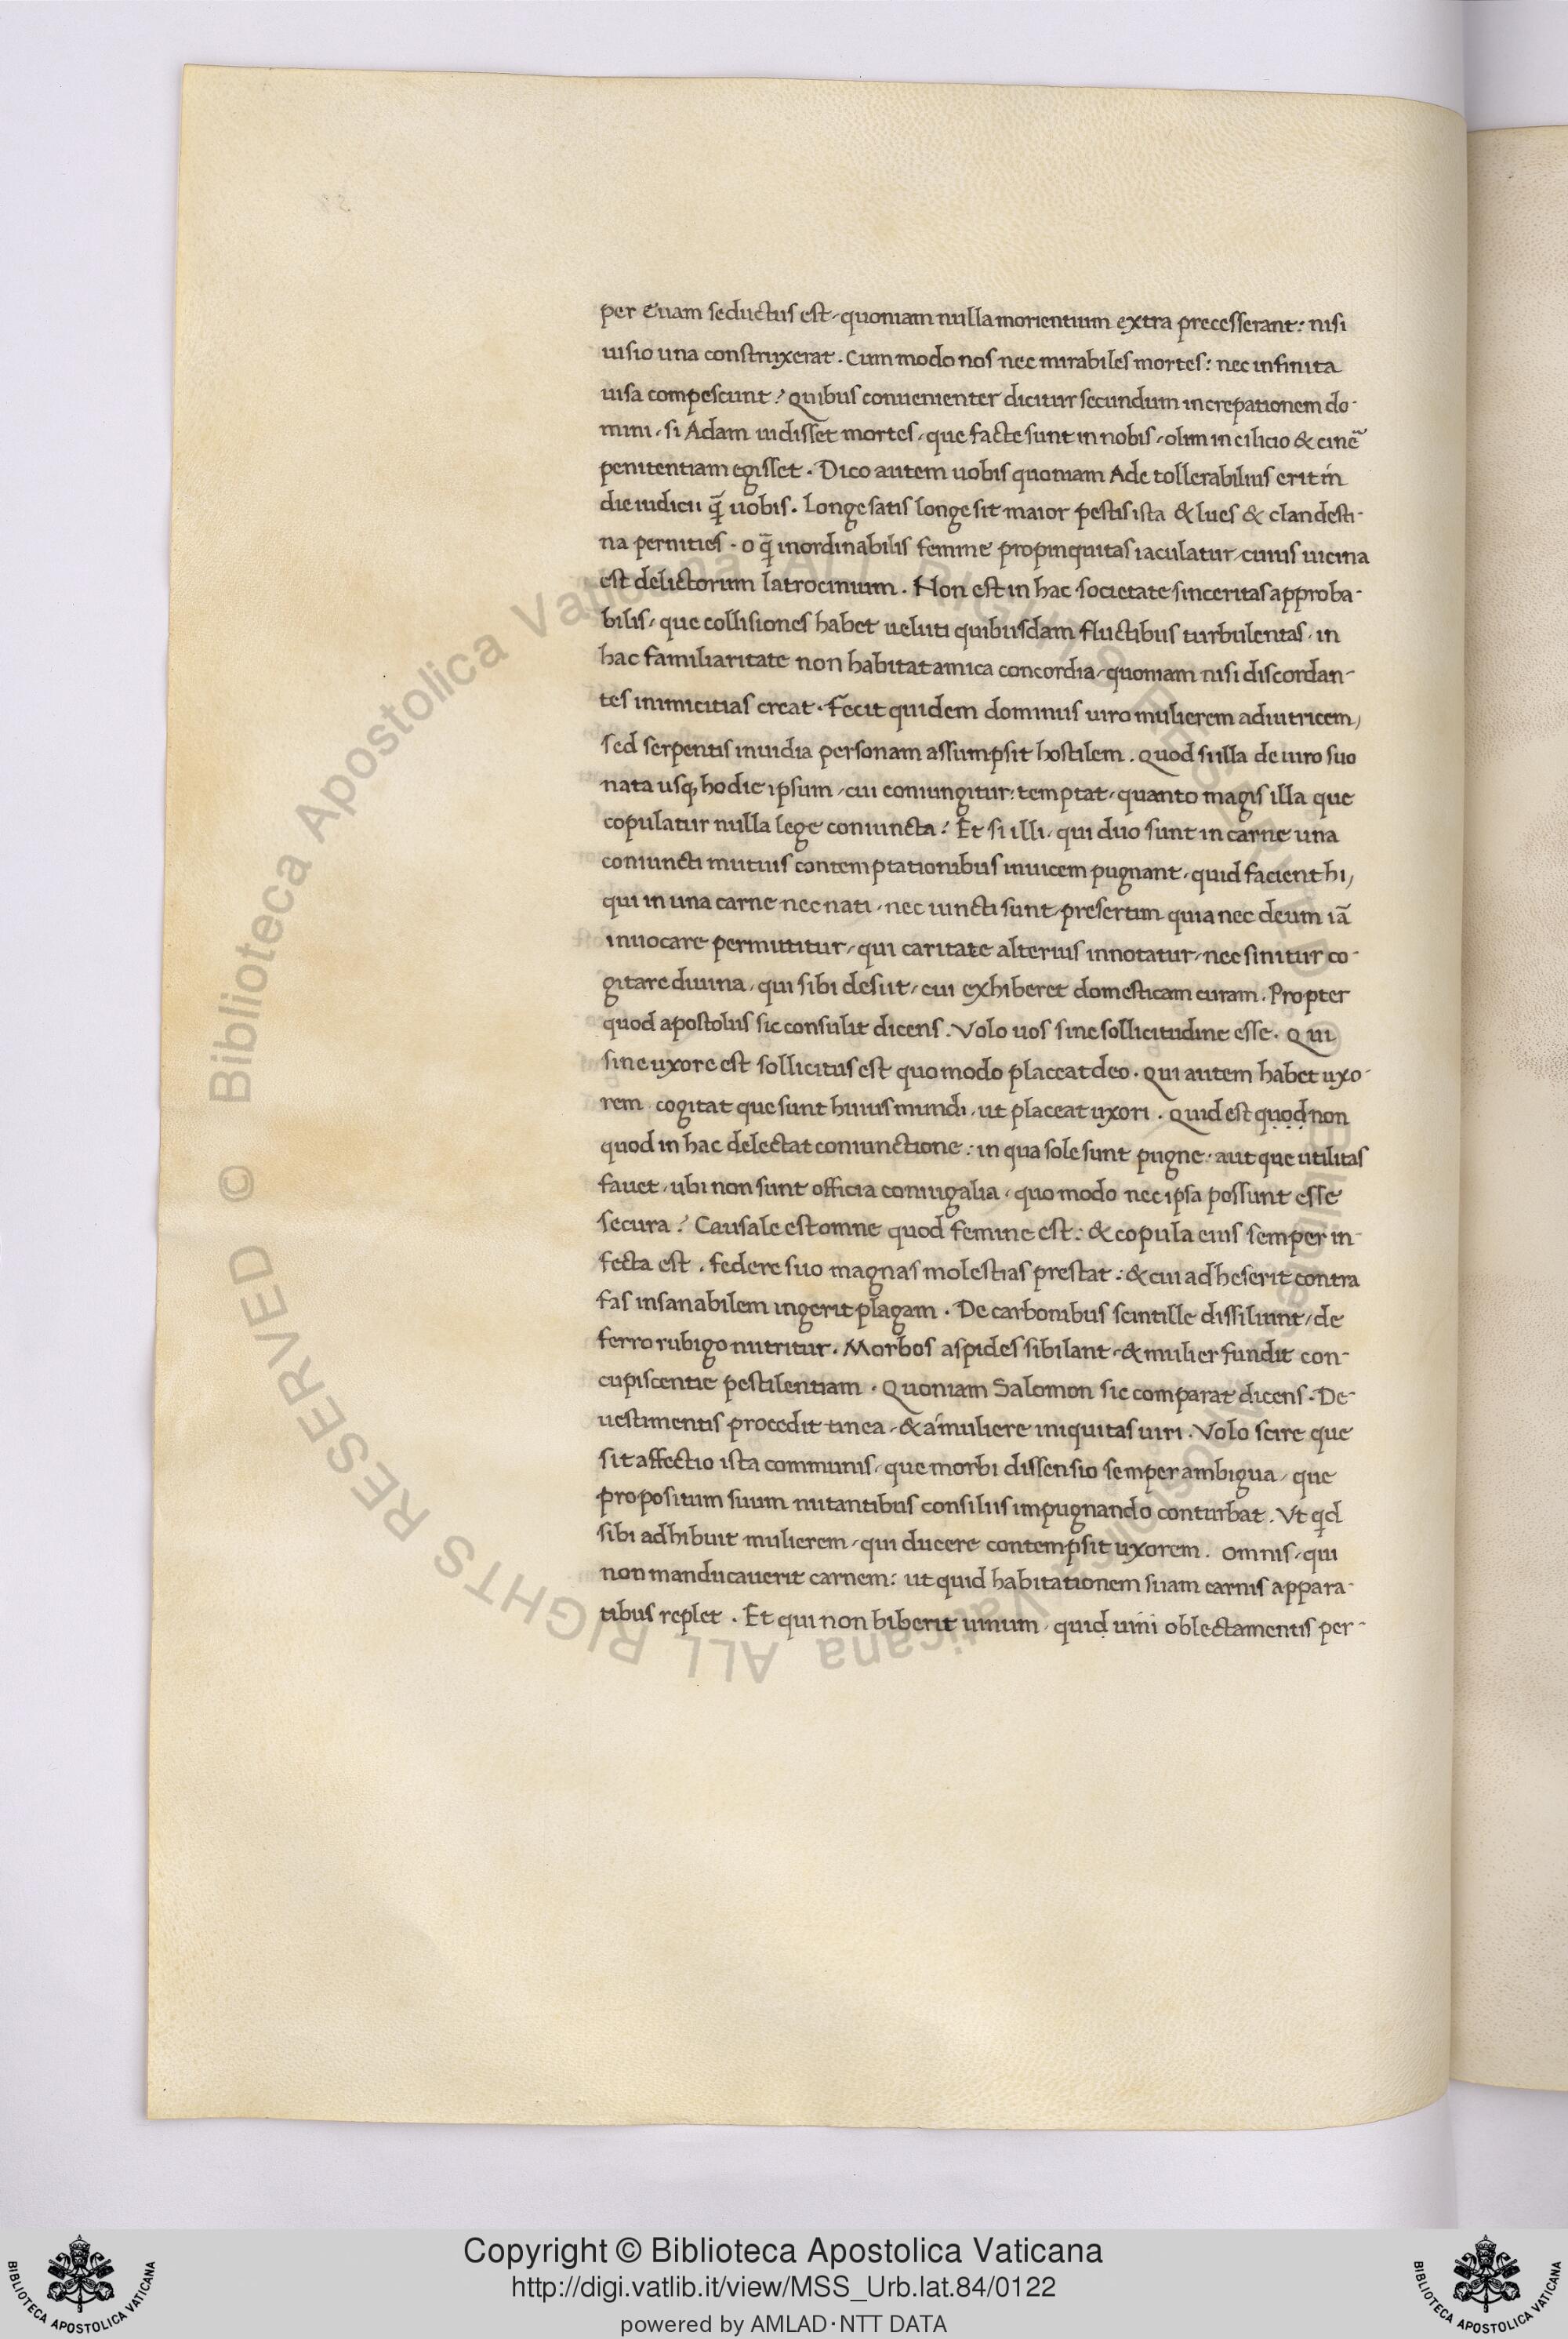 per Euam seductus est, quoniam nulla morientium extra precesserant: nisi
iusio una construxerat. Cum modo nos nec mirabiles mortes: nec infinita
uisa compescunt? Quibus conuenienter dicitur secundum increpationem do-
mini, si Adam uidisset mortes, que facte sunt in nobis, olim in cilicio & cinē
penitentiam egisset. Dico autem uobis quoniam Ade tollerabilius erit in
die iudicii q̄ uobis. Longe satis longe sit maior pestis ista & lues & clandesti-
na pernities. o q̄ inordinabilis femine propinquitas iaculatur, cuius uicina
est delictorum latrocinium. Non est in hac societate sinceritas approba-
bilis, que collisiones habet ueluti quibusdam fluctibus turbulentas, in
hac familiaritate non habitat amica concordia, quoniam nisi discordan-
tes inimicitias creat. Fecit quidem dominus uiro mulierem adiutricem,
sed serpentis inuidia personam assumpsit hostilem. Quod si illa de uiro suo
nata usq; hodie ipsum, cui coniungitur: temptat, quanto magis illa que
copulatur nulla lege coniuncta? Et si illi, qui duo sunt in carne una
coniuncti mutuis contemptationibus inuicem pugnant, quid facient hi,
qui in una carne nec nati, nec iuncti sunt, presertim quia nec deum iā
inuocare permittitur, qui caritate alterius innotatur, nec sinitur co-
gitare diuina, qui sibi desiit, cui exhiberet domesticam curam. Propter
quod apostolus sic consulit dicens. Volo uos sine sollicitudine esse. Qui
sine uxore est sollicitus est quomodo placeat deo. Qui autem habet uxo-
rem cogitat que sunt huius mundi, ut placeat uxori. Quid est quod non
quod in hac delectat coniunctione: in qua sole sunt pugne: aut que utilitas
fauet, ubi non sunt officia coniugalia, quo modo nec ipsa possunt esse
secura? Causale est omne quod femine est: & copula eius semper in-
fecta est. federe suo magnas molestias prestat: & cui adheserit contra
fas insanabilem ingerit plagam. De carbonibus scintille dissiliunt, de
ferro rubigo nutritur. Morbos aspides sibilant, & mulier fundit con-
cupiscentie pestilentiam. Quoniam Salomon sic comparat dicens. De
uestimentis procedit tinea, & a muliere iniquitas uiri. Volo scire que
sit affectio ista communis, que morbi dissensio semper ambigua, que
propositum suum nutantibus consiliis impugnando conturbat. Vt qd
sibi adhibuit mulierem, qui ducere contempsit uxorem. omnis, qui
non manducauerit carnem: ut quid habitationem suam carnis appara-
tibus replet. Et qui non biberit uinum, quid uini oblectamentis per-
© Biblioteca Apostolica Vaticana ALL RIGHTS RESERVED © Biblioteca Apostolica Vaticana ALL RIGHTS RESERVED
Copyright © Biblioteca Apostolica Vaticana
http://digi.vatlib.it/view/MSS_Urb.lat.84/0122
powered by AMLAD·NTT DATA
BIBLIOTECA APOSTOLICA VATICANA
BIBLIOTECA APOSTOLICA VATICANA